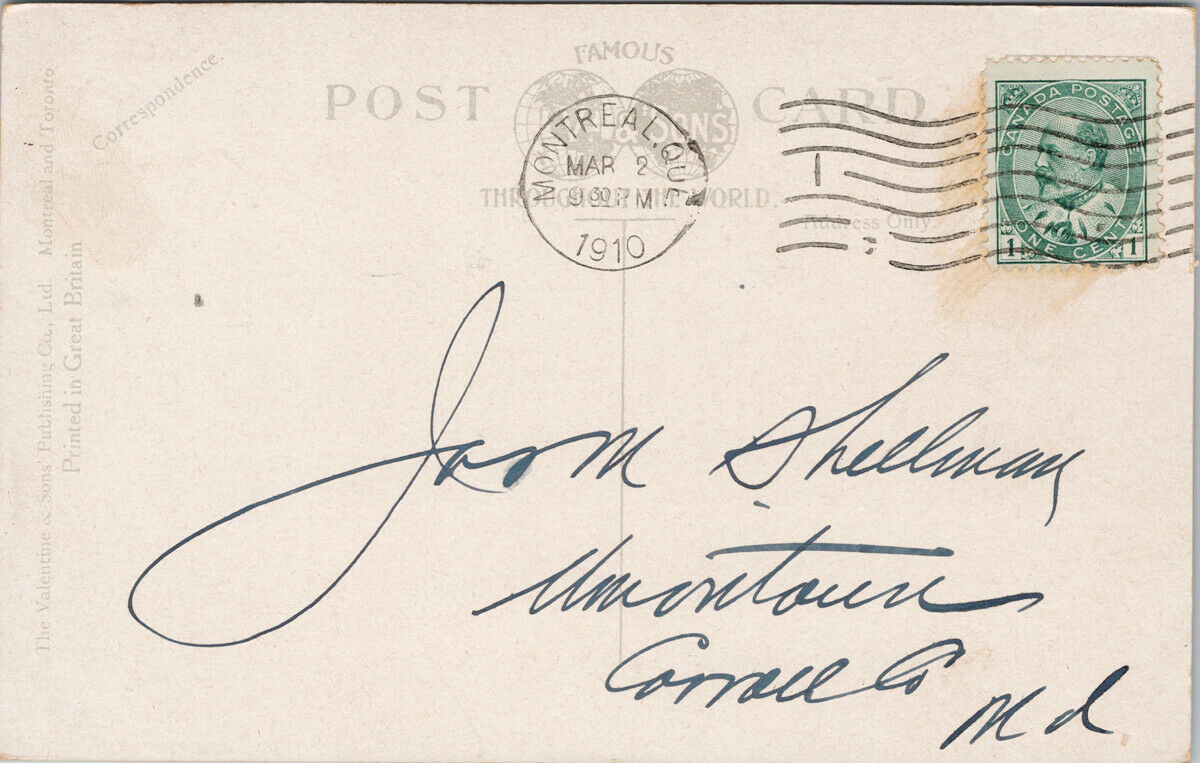 The Valentine & Sons' Publishing Co., Ltd. Montreal and Toronto
Printed in Great Britain
Correspondence.
FAMOUS
POST CARD
& SONS
THROUGHOUT THE WORLD.
Address Only.
MONTREAL. QUE
MAR 2
9 30 P M
1910
CANADA POSTAGE
1 ONE CENT 1
Jas M Shellman
Uniontown
Carroll Co
Md